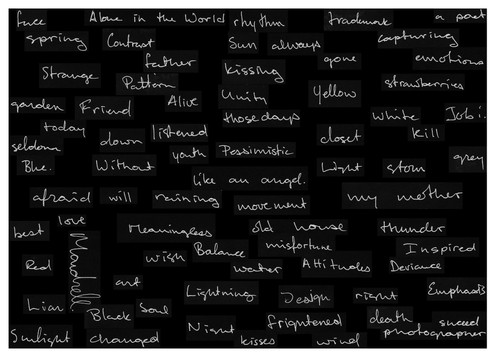 face Alone in the World rhythm trademark a poet
spring Contrast Sun always capturing
father gone emotions
Strange Pattern kissing strawberries
garden Friend Alive Unity Yellow
those days white Jobi.
today down listened closet Kill
seldom youth Pessimistic grey
Blue. Without Light storm
like an angel.
afraid will raining movement my mother
best love Meaningless old house thunder
misfortune Inspired
Red wish Balance water Attitudes Deviance
art
Liar Lightning Design right Emphasis
Black Soul
Night frightened death succeed
Sunlight changed kisses wind photographer